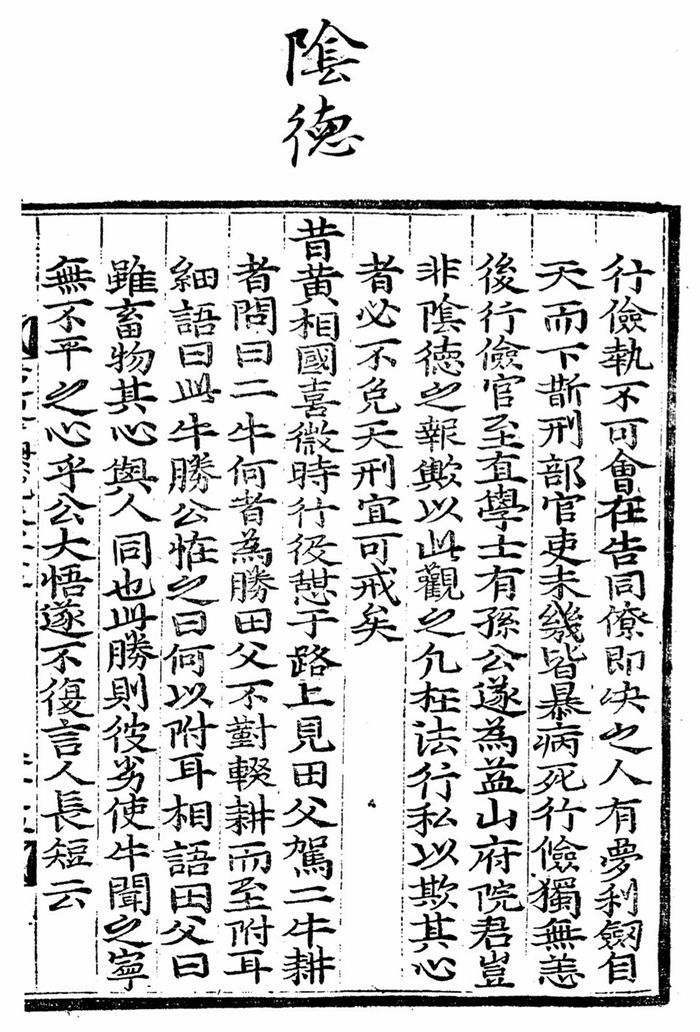 陰德
行儉執不可會在告同僚卽决之人有夢利劔自
天而下斮刑部官吏未幾皆暴病死行儉獨無恙
後行儉官至直學士有孫公遂為益山府院君豈
非陰德之報歟以此觀之凢枉法行私以欺其心
者必不免天刑宜可戒矣
昔黄相國喜微時行役憇于路上見田父駕二牛耕
者問曰二牛何者為勝田父不對輟耕而至附耳
細語曰此牛勝公恠之曰何以附耳相語田父曰
雖畜物其心與人同也此勝則彼劣使牛聞之寧
無不平之心乎公大悟遂不復言人長短云